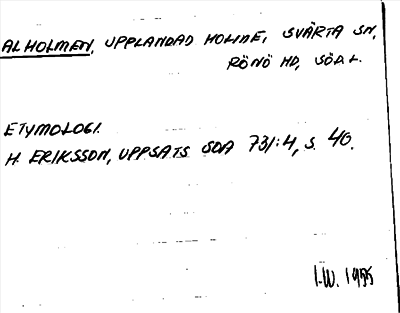 ALHOLMEN, UPPLANDAD HOLME, SVÄRTA SN,
RÖNÖ HD, SÖD.L.
ETYMOLOGI.
H. ERIKSSON, UPPSATS SOA 731:4, S. 40.
I.W. 1995